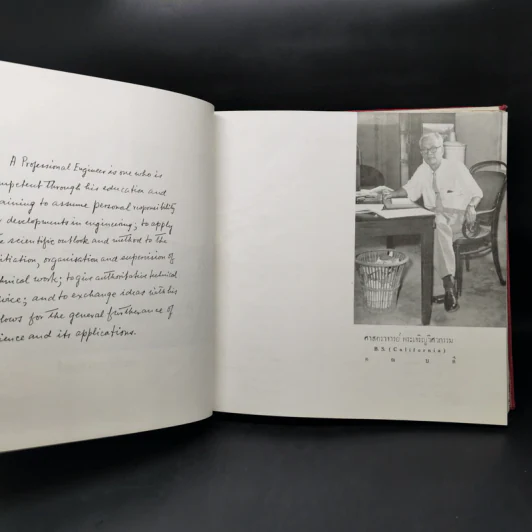 A Professional Engineer is one who is
mpetent through his education and
aining to assume personal reponsibility
developments in engineering; to apply
e scientific outlook and method to the
itiation, organisation and supervision of
chnical work; to give authoritative technical
vice; and to exchange ideas with his
llows for the general furtherance of
ience and its applications.
ศาสตราจารย์ พระเจริญวิศวกรรม
B.S (California)